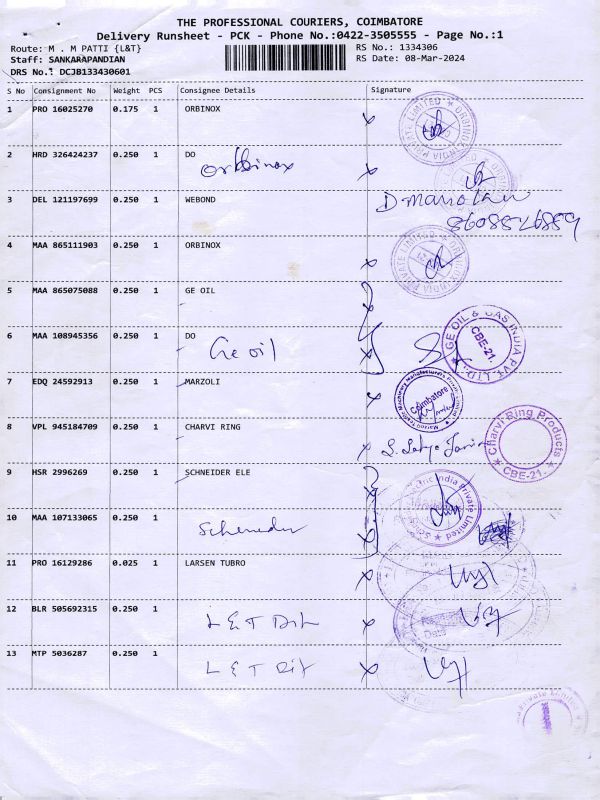 THE PROFESSIONAL COURIERS, COIMBATORE
Delivery Runsheet - PCK - Phone No.:0422-3505555 - Page No.:1
Route: M . M PATTI {L&T}
RS No.: 1334306
Staff: SANKARAPANDIAN
RS Date: 08-Mar-2024
DRS No.: DCJB133430601
S No Consignment No Weight PCS Consignee Details Signature
1 PRO 16025270 0.175 1 ORBINOX
ORBINOX INDIA PRIVATE LIMITED
2 HRD 326424237 0.250 1 DO
Orbinox
3 DEL 121197699 0.250 1 WEBOND
D Manoharan
4 MAA 865111903 0.250 1 ORBINOX
5 MAA 865075088 0.250 1 GE OIL
6 MAA 108945356 0.250 1 DO
Ge oil
GE OIL & GAS INDIA PVT. LTD.
CBE-21.
7 EDQ 24592913 0.250 1 MARZOLI
Coimbatore
8 VPL 945184709 0.250 1 CHARVI RING
Charvi Ring Products
CBE-21.
9 HSR 2996269 0.250 1 SCHNEIDER ELE
India Private Limited
10 MAA 107133065 0.250 1
Schneider
11 PRO 16129286 0.025 1 LARSEN TUBRO
12 BLR 505692315 0.250 1
L & T
Date
13 MTP 5036287 0.250 1
L & T
Private Limited